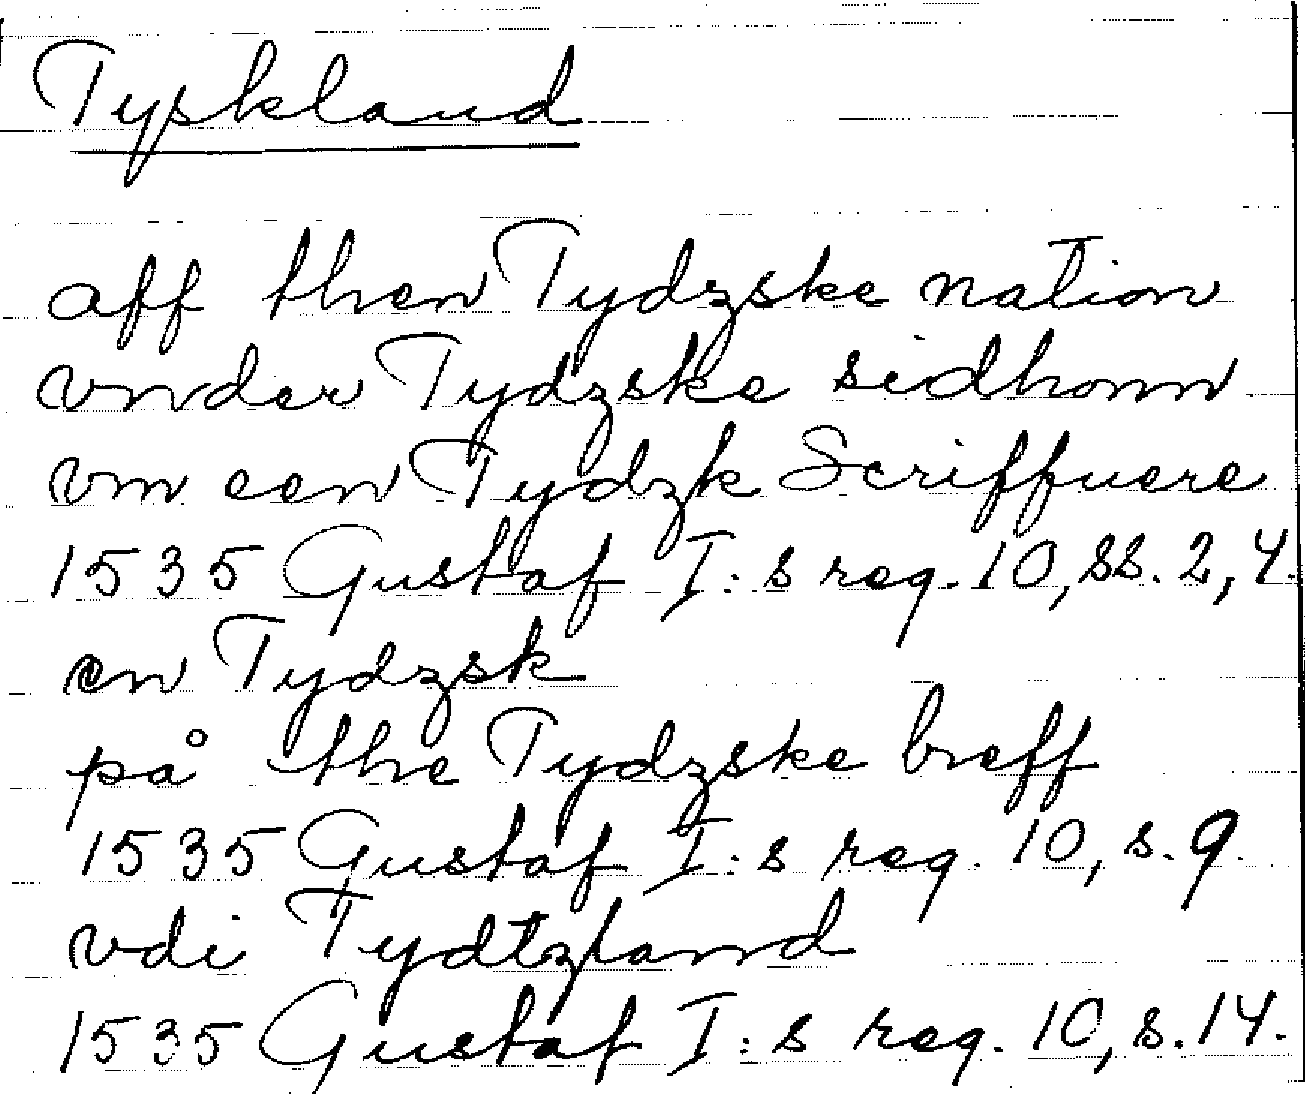 Tyskland
aff then Tydzske nation
vnder Tydzske sidhonn
vm een Tydzk Scriffuere
1535 Gustaf I:s reg. 10, ss. 2, 4.
en Tydzsk
på the Tydzske breff
1535 Gustaf I:s reg. 10, s. 9.
vdi Tydtzland
1535 Gustaf I:s reg. 10, s. 14.